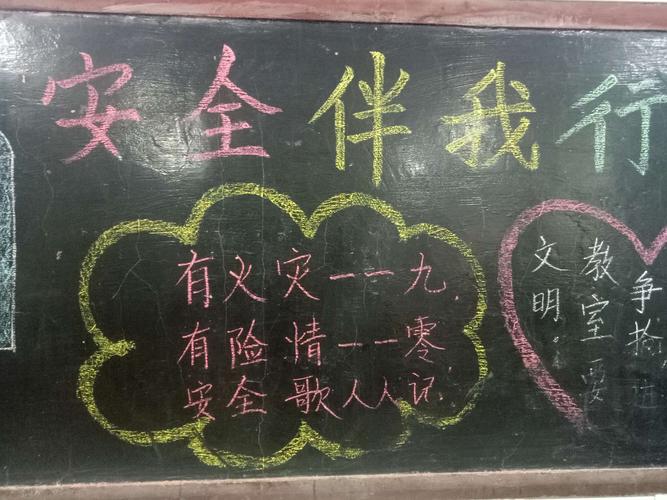 安全伴我行
有火灾一一九,
有险情一一零
安全歌人人记,
文明.
教室要
争抢,进